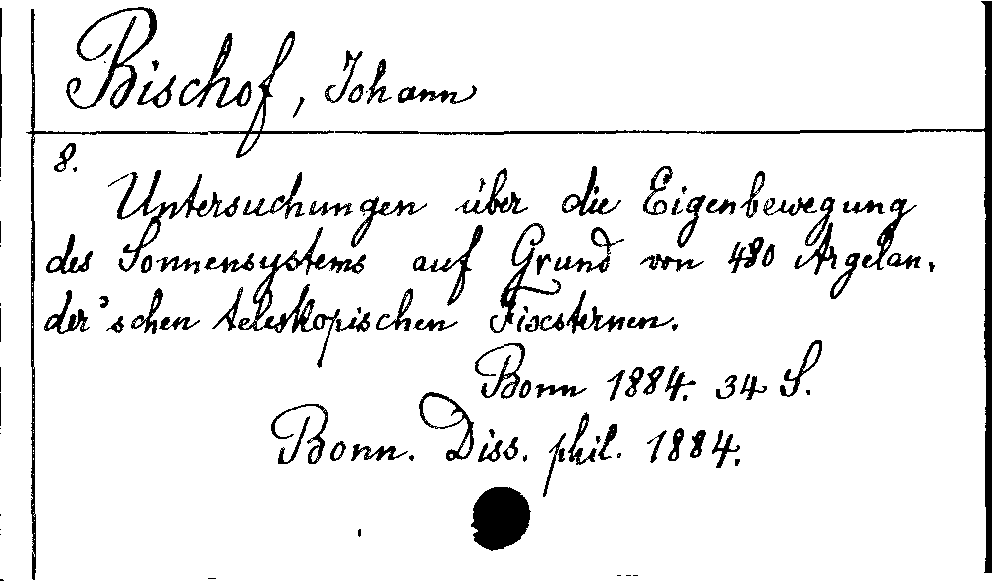 Bischof, Johann
8.
Untersuchungen über die Eigenbewegung
des Sonnensystems auf Grund von 480 Argelan-
der'schen teleskopischen Fixsternen.
Bonn 1884. 34 S.
Bonn. Diss. phil. 1884.